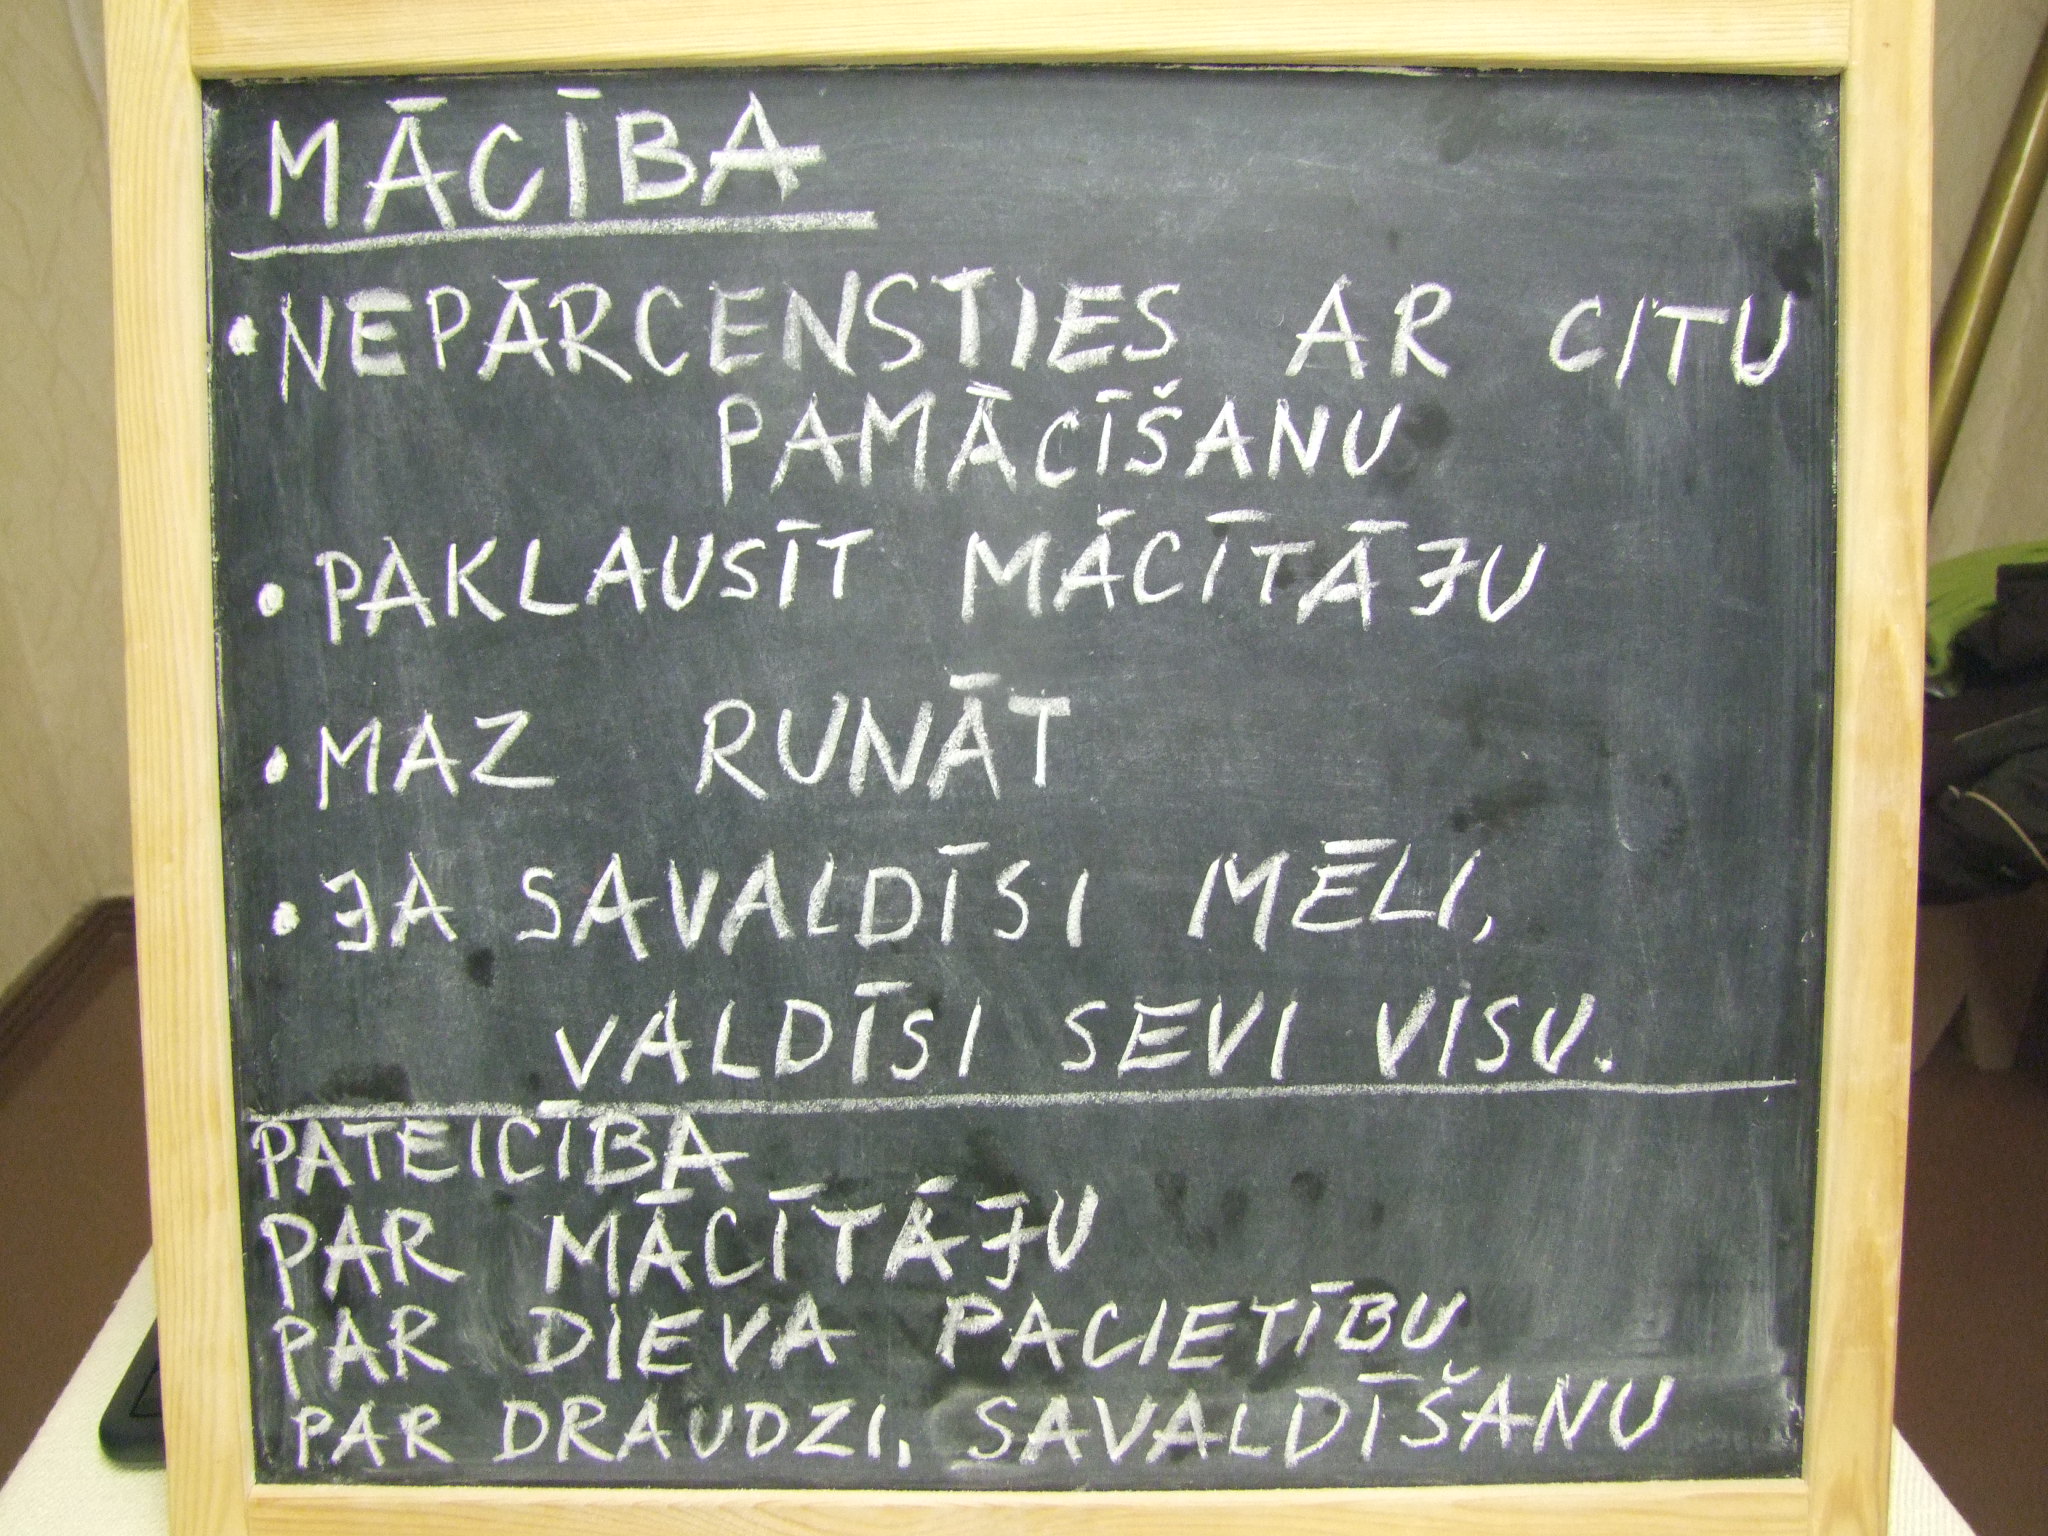 MĀCĪBA
• NEPĀRCENSTIES AR CITU
PAMĀCĪŠANU
• PAKLAUSĪT MĀCĪTĀJU
• MAZ RUNĀT
• JA SAVALDĪSI MĒLI,
VALDĪSI SEVI VISU.
PATEICĪBA
PAR MĀCĪTĀJU
PAR DIEVA PACIETĪBU
PAR DRAUDZI, SAVALDĪŠANU